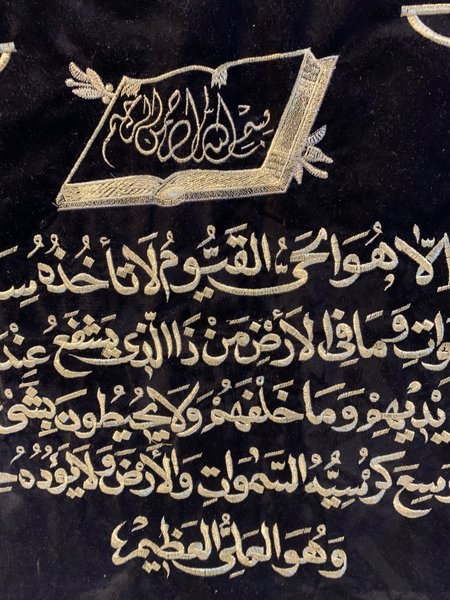 بسم الله الرحمن الرحيم
إلا هو الحي القيوم لا تأخذه
وما في الأرض من ذا الذي يشفع
يديهم وما خلفهم ولا يحيطون بشئ
وسع كرسيه السموات والأرض ولا يؤده
وهو العلي العظيم